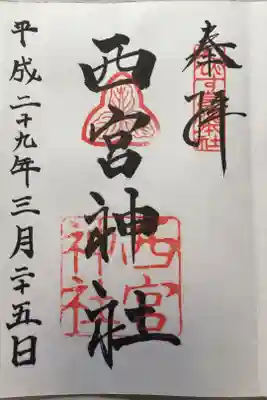 奉拝
西宮神社
西宮
神社
平成二十九年三月二十五日